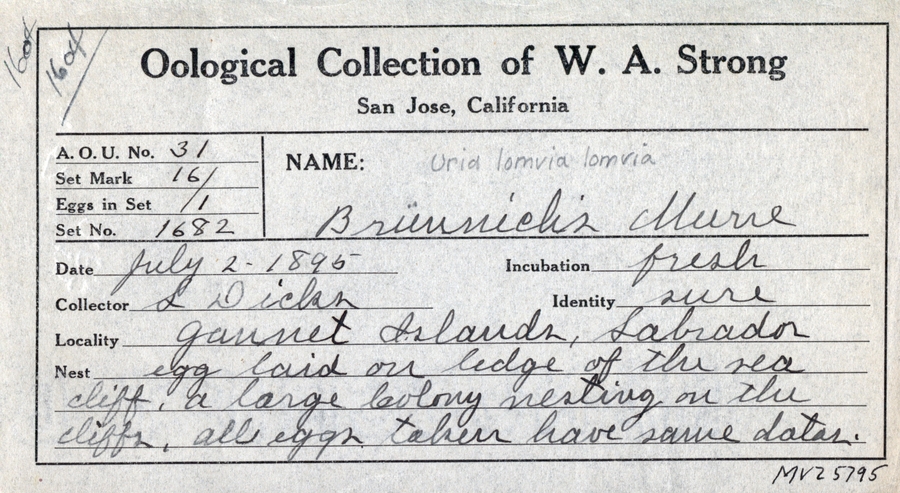 1604
1604
Oological Collection of W. A. Strong
San Jose, California
A. O. U. No. 31
Set Mark 16/
Eggs in Set /1
Set No. 1682
NAME: Uria lomvia lomvia
Brünnichs Murre
Date July 2 - 1895
Incubation fresh
Collector L Dicks
Identity sure
Locality Gannet Islands, Labrador
Nest egg laid on ledge of the sea
cliff, a large Colony nesting on the
cliffs, all eggs taken have same datas.
MVZ 5795